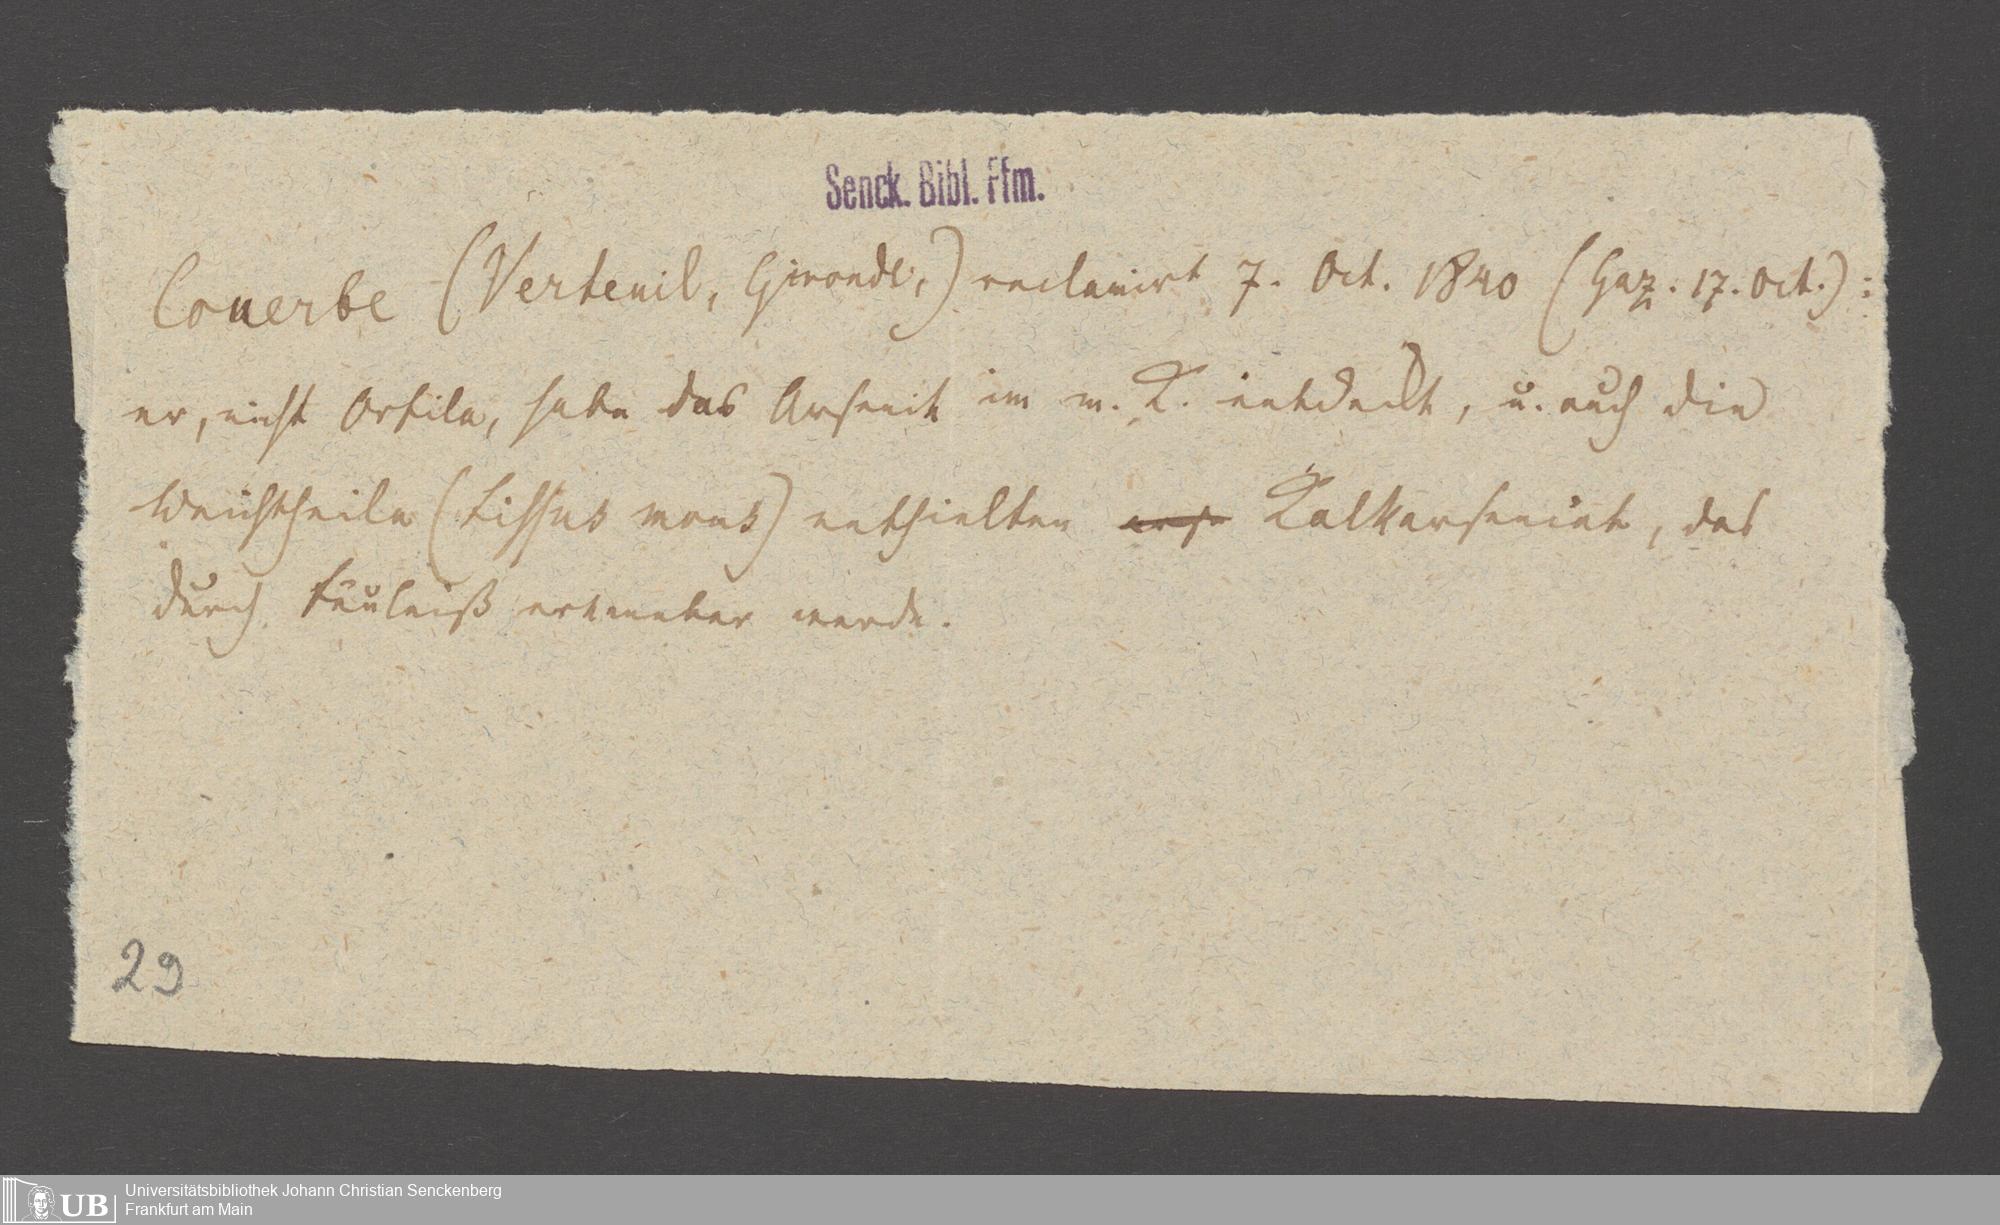 Senck. Bibl. Ffm.
Couerbe (Verteuil, Gironde,) reclamirt 7. Oct. 1840 (Gaz. 17. Oct.):
er, nicht Orfila, habe das Arsenik im m. K. entdeckt, u. auch die
Weichtheile (tissus mous) enthielten arse Kalkarseniat, das
durch Fäulniß erkennbar werde.
29
UB
Universitätsbibliothek Johann Christian Senckenberg
Frankfurt am Main